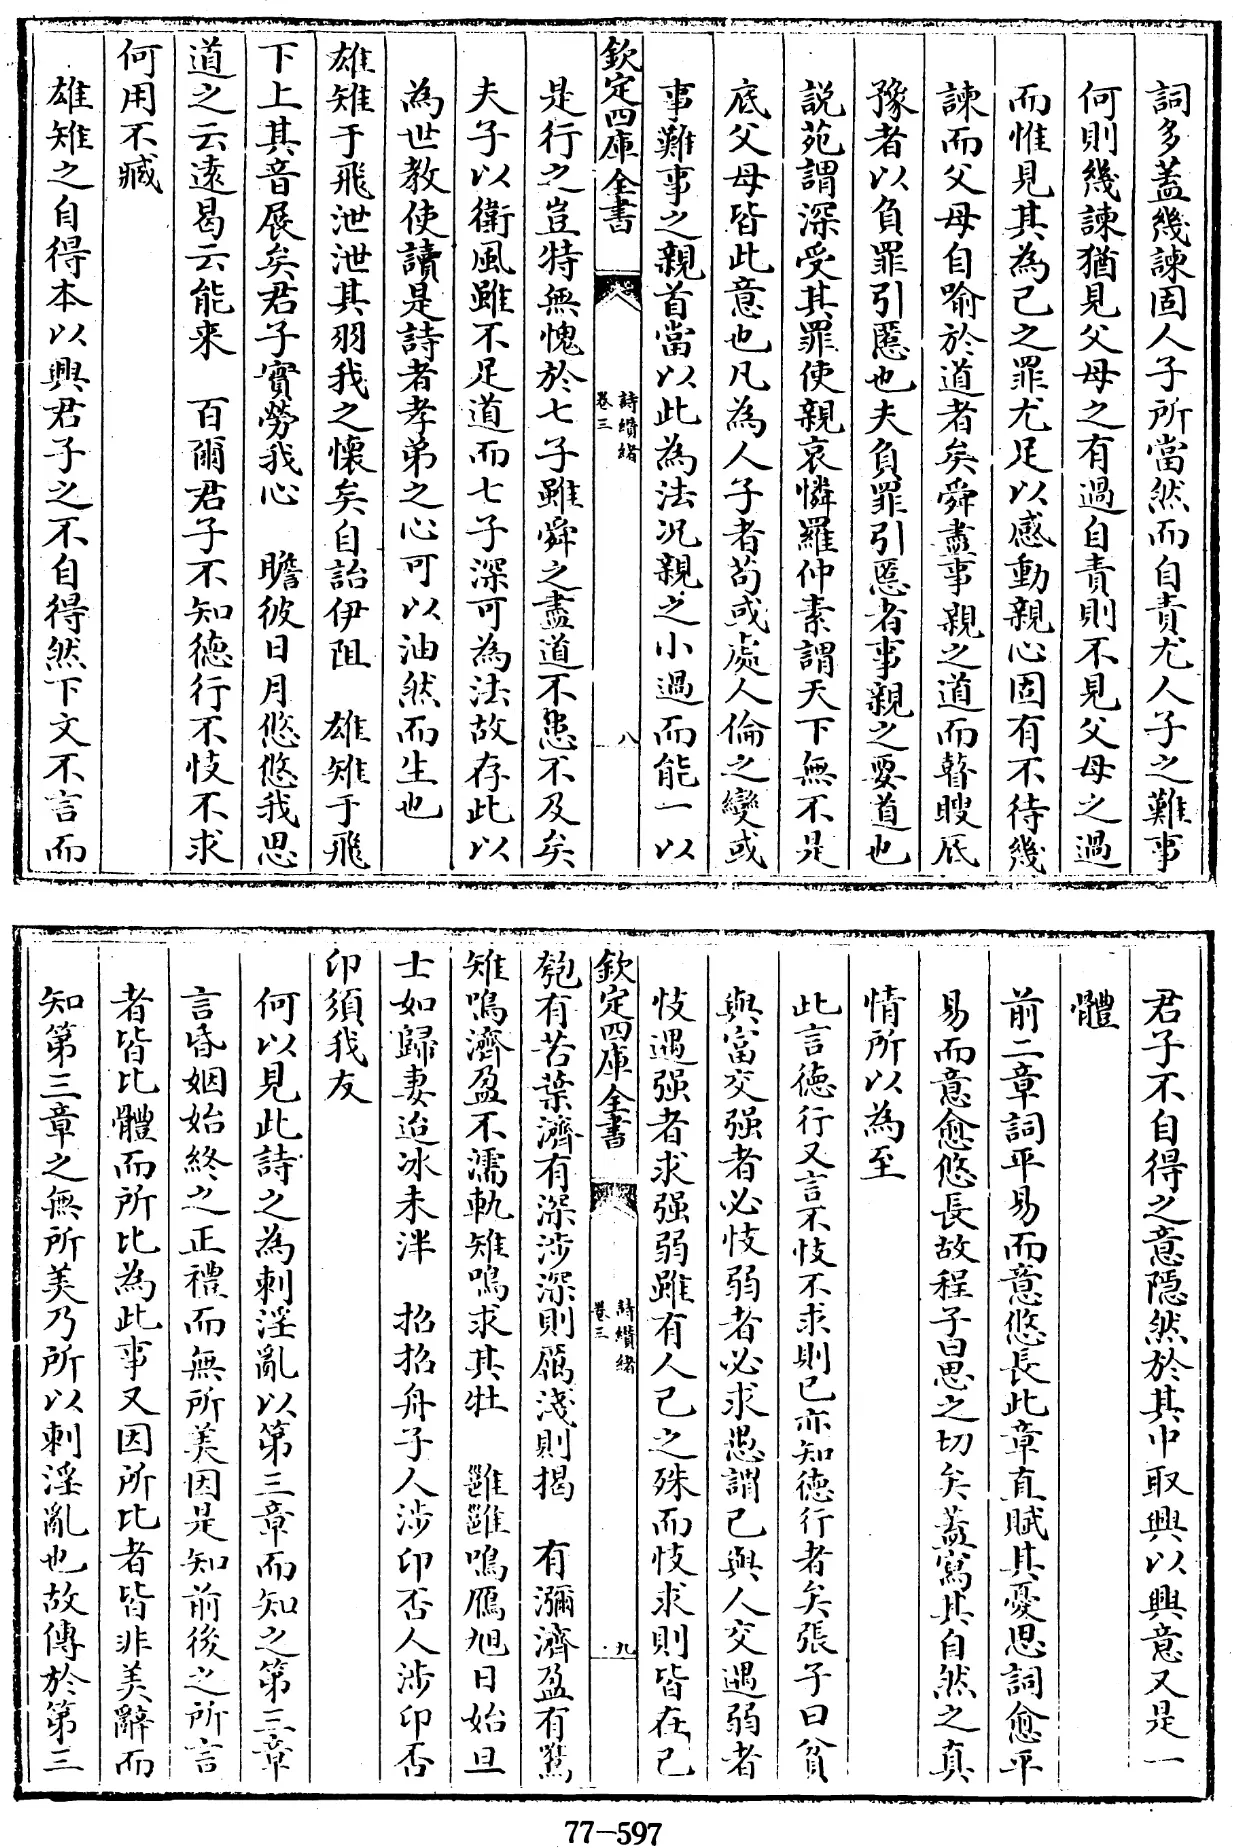 詞多蓋幾諫固人子所當然而自責尤人子之難事
何則幾諫猶見父母之有過自責則不見父母之過
而惟見其為己之罪尤足以感動親心固有不待幾
諫而父母自喻於道者矣舜盡事親之道而瞽瞍厎
豫者以負罪引慝也夫負罪引慝者事親之要道也
説苑謂深受其罪使親哀憐羅仲素謂天下無不是
底父母皆此意也凡為人子者苟或處人倫之變或
事難事之親首當以此為法况親之小過而能一以
欽定四庫全書
詩纘緒
卷三
八
是行之豈特無愧於七子雖舜之盡道不患不及矣
夫子以衛風雖不足道而七子深可為法故存此以
為世教使讀是詩者孝弟之心可以油然而生也
雄雉于飛泄泄其羽我之懷矣自詒伊阻　雄雉于飛
下上其音展矣君子實勞我心　瞻彼日月悠悠我思
道之云遠曷云能来　百爾君子不知德行不忮不求
何用不臧
雄雉之自得本以興君子之不自得然下文不言而
君子不自得之意隱然於其中取興以興意又是一
體
前二章詞平易而意悠長此章直賦其憂思詞愈平
易而意愈悠長故程子曰思之切矣蓋寫其自然之真
情所以為至
此言德行又言不忮不求則已亦知德行者矣張子曰貧
與富交强者必忮弱者必求愚謂已與人交遇弱者
忮遇强者求强弱雖有人己之殊而忮求則皆在己
欽定四庫全書
詩纘緒
卷三
九
匏有苦葉濟有深涉深則厲淺則揭　有瀰濟盈有鷕
雉鳴濟盈不濡軌雉鳴求其牡　雝雝鳴鴈旭日始旦
士如歸妻迨冰未泮　招招舟子人涉卬否人涉卬否
卬須我友
何以見此詩之為刺淫亂以第三章而知之第三章
言昏姻始終之正禮而無所美因是知前後之所言
者皆比體而所比為此事又因所比者皆非美辭而
知第三章之無所美乃所以刺淫亂也故傳於第三
77-597